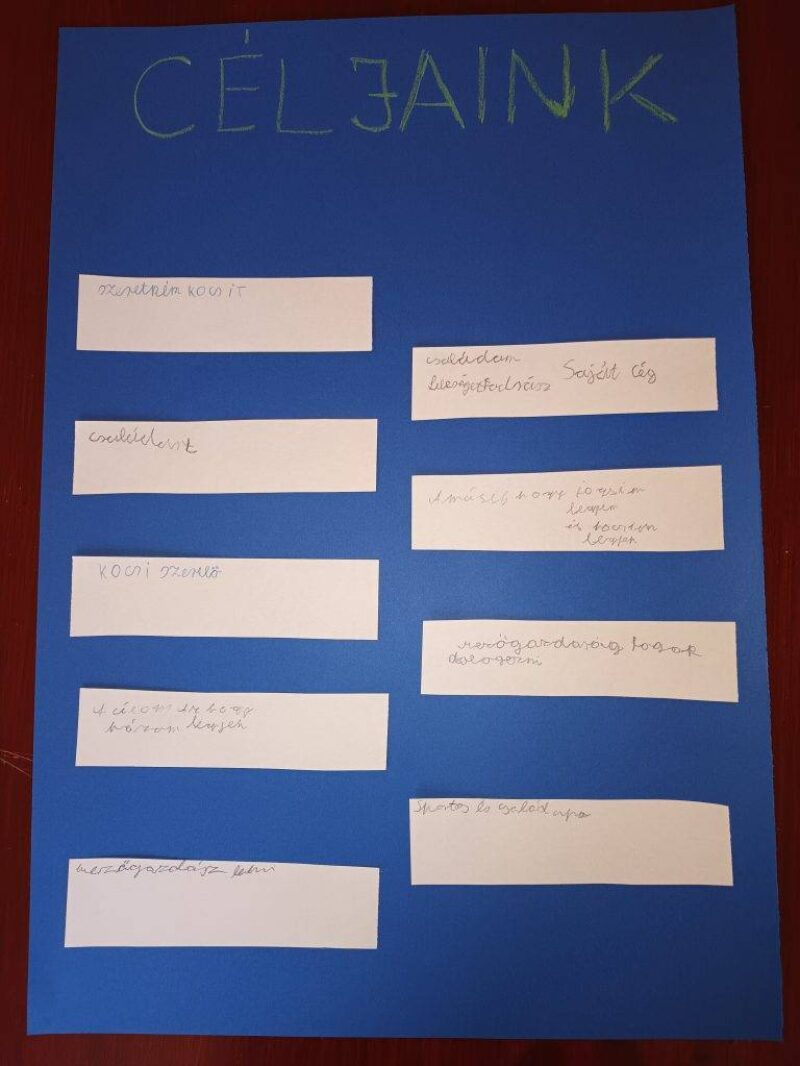 CÉLJAINK
szeretnék KOCSIT
családom
feleséget
Saját cég
családot
A másik hogy jogsim
legyen
és kocsim
legyen
KOCSI szerelő
mezőgazdaság fogok
dolgozni
A célom az hogy
legyen
Sportos és család apa
mezőgazdász lenni